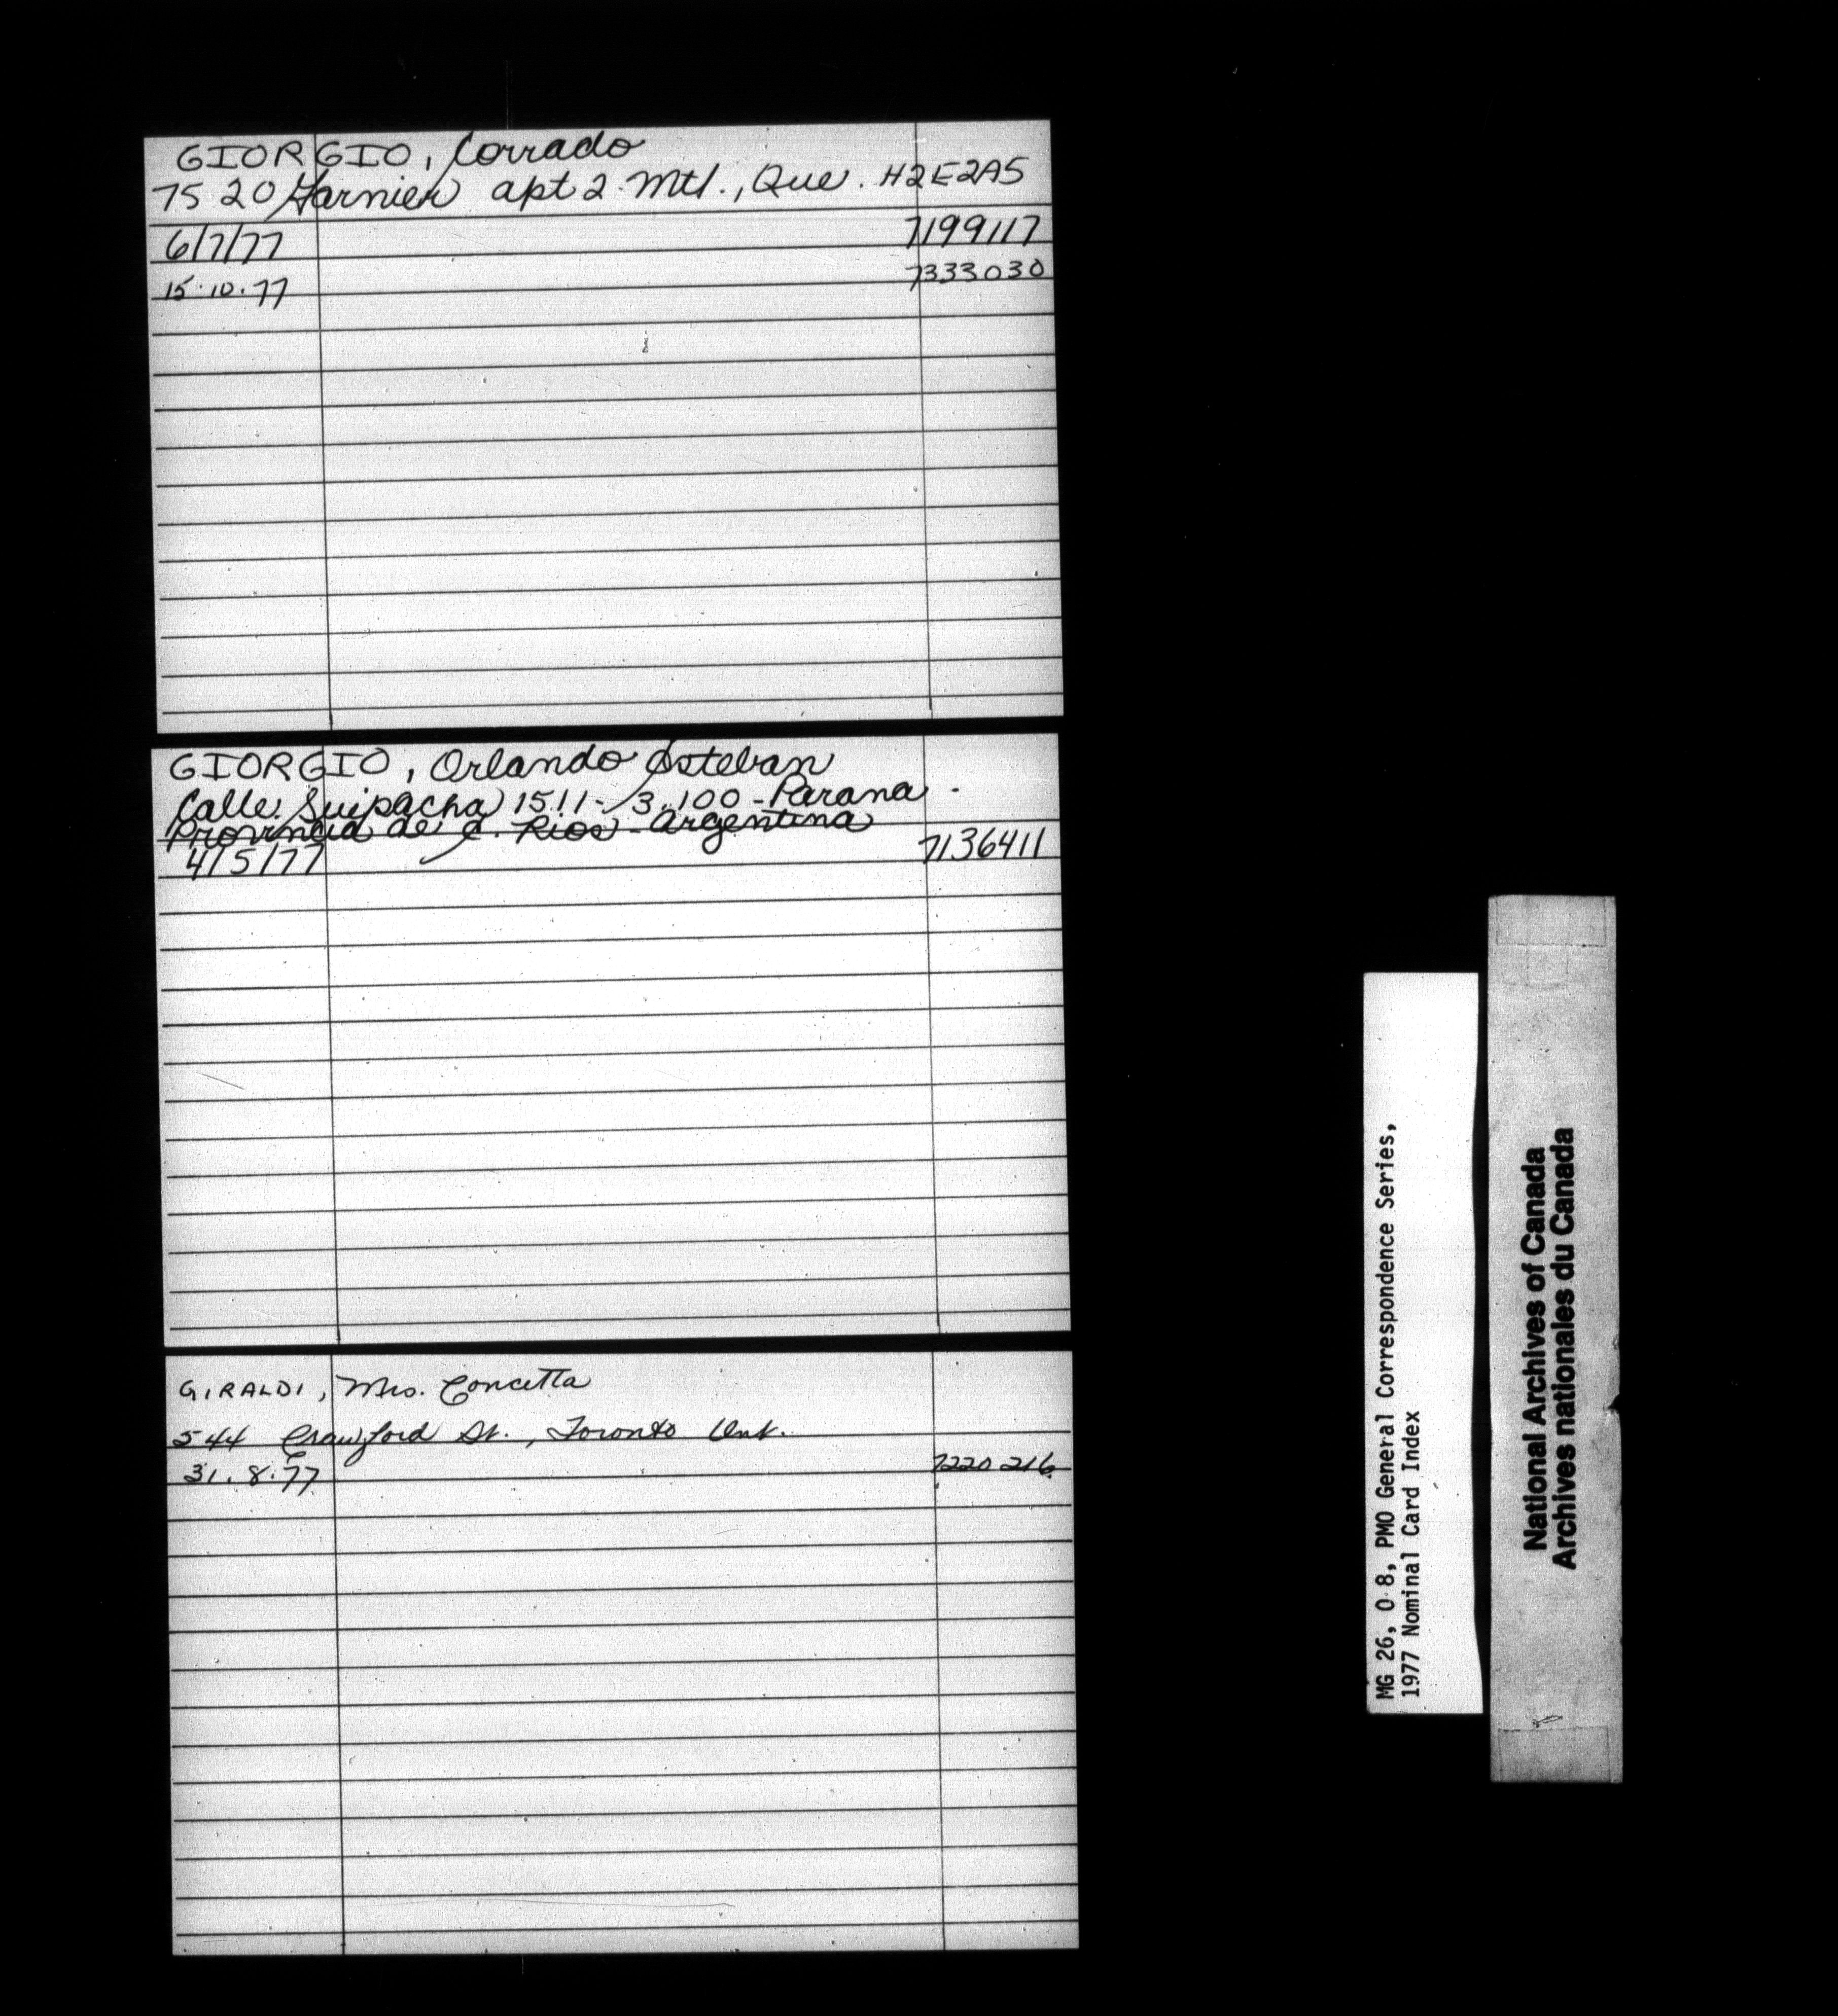 GIORGIO, Corrado
7520 Garnier apt 2. Mtl., Que. H2E2A5
6/7/77 7199117
15.10.77 7333030
GIORGIO, Orlando Esteban
Calle Suipacha 1511 - 3.100 - Parana -
Provincia de E. Rios - Argentina
4/5/77 7136411
GIRALDI, Mrs. Concetta
544 Crawford St., Toronto Ont.
31.8.77 7220216
MG 26, O 8, PMO General Correspondence Series,
1977 Nominal Card Index
National Archives of Canada
Archives nationales du Canada